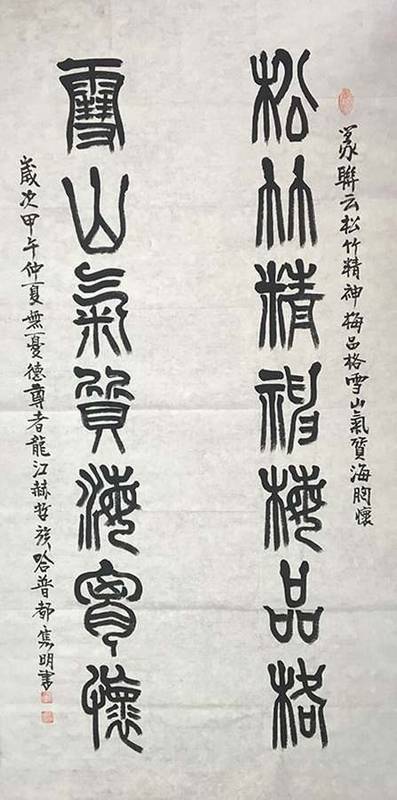 篆聯云松竹精神梅品格雪山氣質海胸懷
松竹精神梅品格
雪山氣質海胸懷
歲次甲午仲夏無憂德尊者龍江赫哲族哈普都雋明書